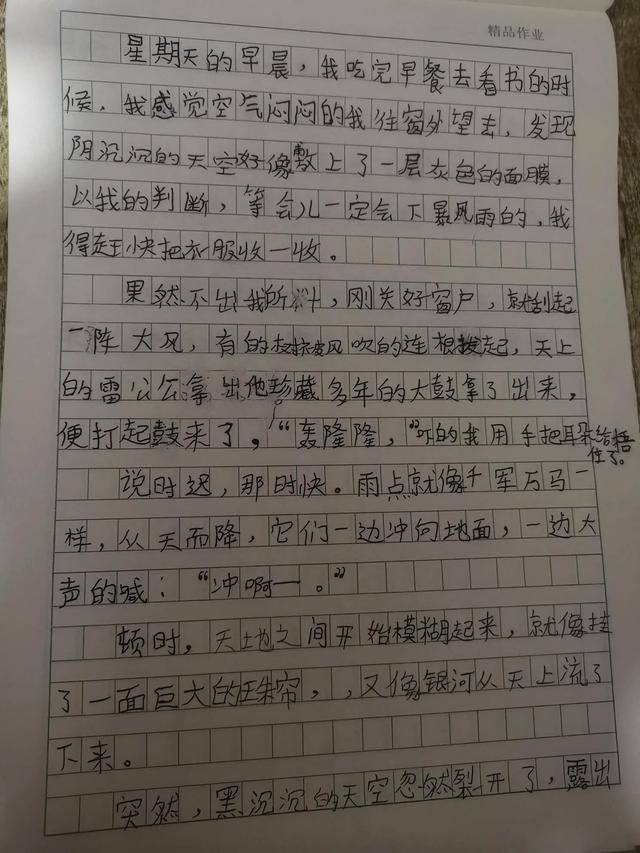 精品作业
星期天的早晨，我吃完早餐去看书的时
候，我感觉空气闷闷的我往窗外望去，发现
阴沉沉的天空好像敷上了一层灰色的面膜，
以我的判断，等会儿一定会下暴风雨的，我
得赶快把衣服收一收。
果然不出我所料，刚关好窗户，就刮起
一阵大风，有的树被风吹的连根拔起，天上
的雷公公拿出他珍藏多年的大鼓拿了出来，
便打起鼓来了，“轰隆隆，”吓的我用手把耳朵给捂
住了。
说时迟，那时快。雨点就像千军万马一
样，从天而降，它们一边冲向地面，一边大
声的喊：“冲啊一。”
顿时，天地之间开始模糊起来，就像挂
了一面巨大的珠帘，，又像银河从天上流了
下来。
突然，黑沉沉的天空忽然裂开了，露出